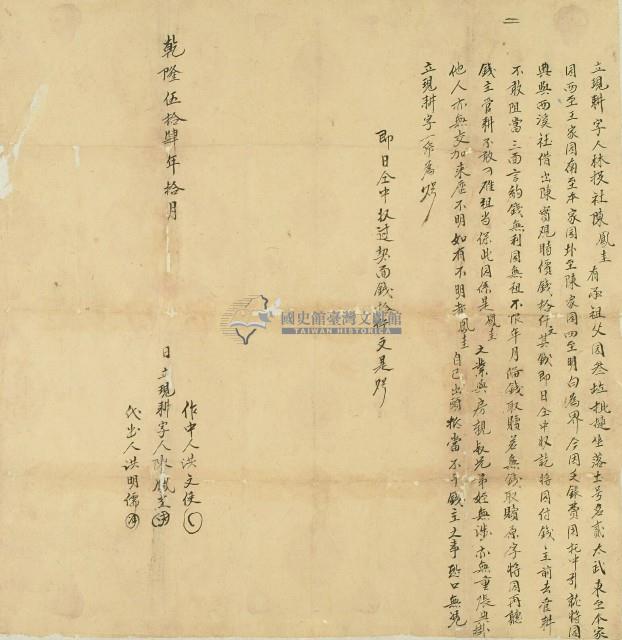 立現耕字人林投社陳鳳圭有承祖父園叁坵批連坐落土号名貳太武東至本家
園西至王家園南至本家園北至陳家園四至明白為界今因乏銀費用托中引就將園
典與西溪社借出陳實觀時價錢拾仟文其錢即日仝中收訖將園付錢主前去管耕
不敢阻當三面言約錢無利園無租不限年月備錢取贖若無錢取贖原字將園再聽
錢主管耕不敢刁难阻当保此園係是鳳圭之業與房親叔兄弟姪無涉亦無重張典掛
他人亦無交加來歷不明如有不明者鳳圭自己出頭抵當不干錢主之事恐口無凭
立現耕字一紙為炤
即日仝中収过契面錢拾仟文是炤
乾隆伍拾肆年拾月 日立現耕字人陳鳳圭
作中人洪文使
代出人洪明儒
國史館臺灣文獻館
TAIWAN HISTORICA